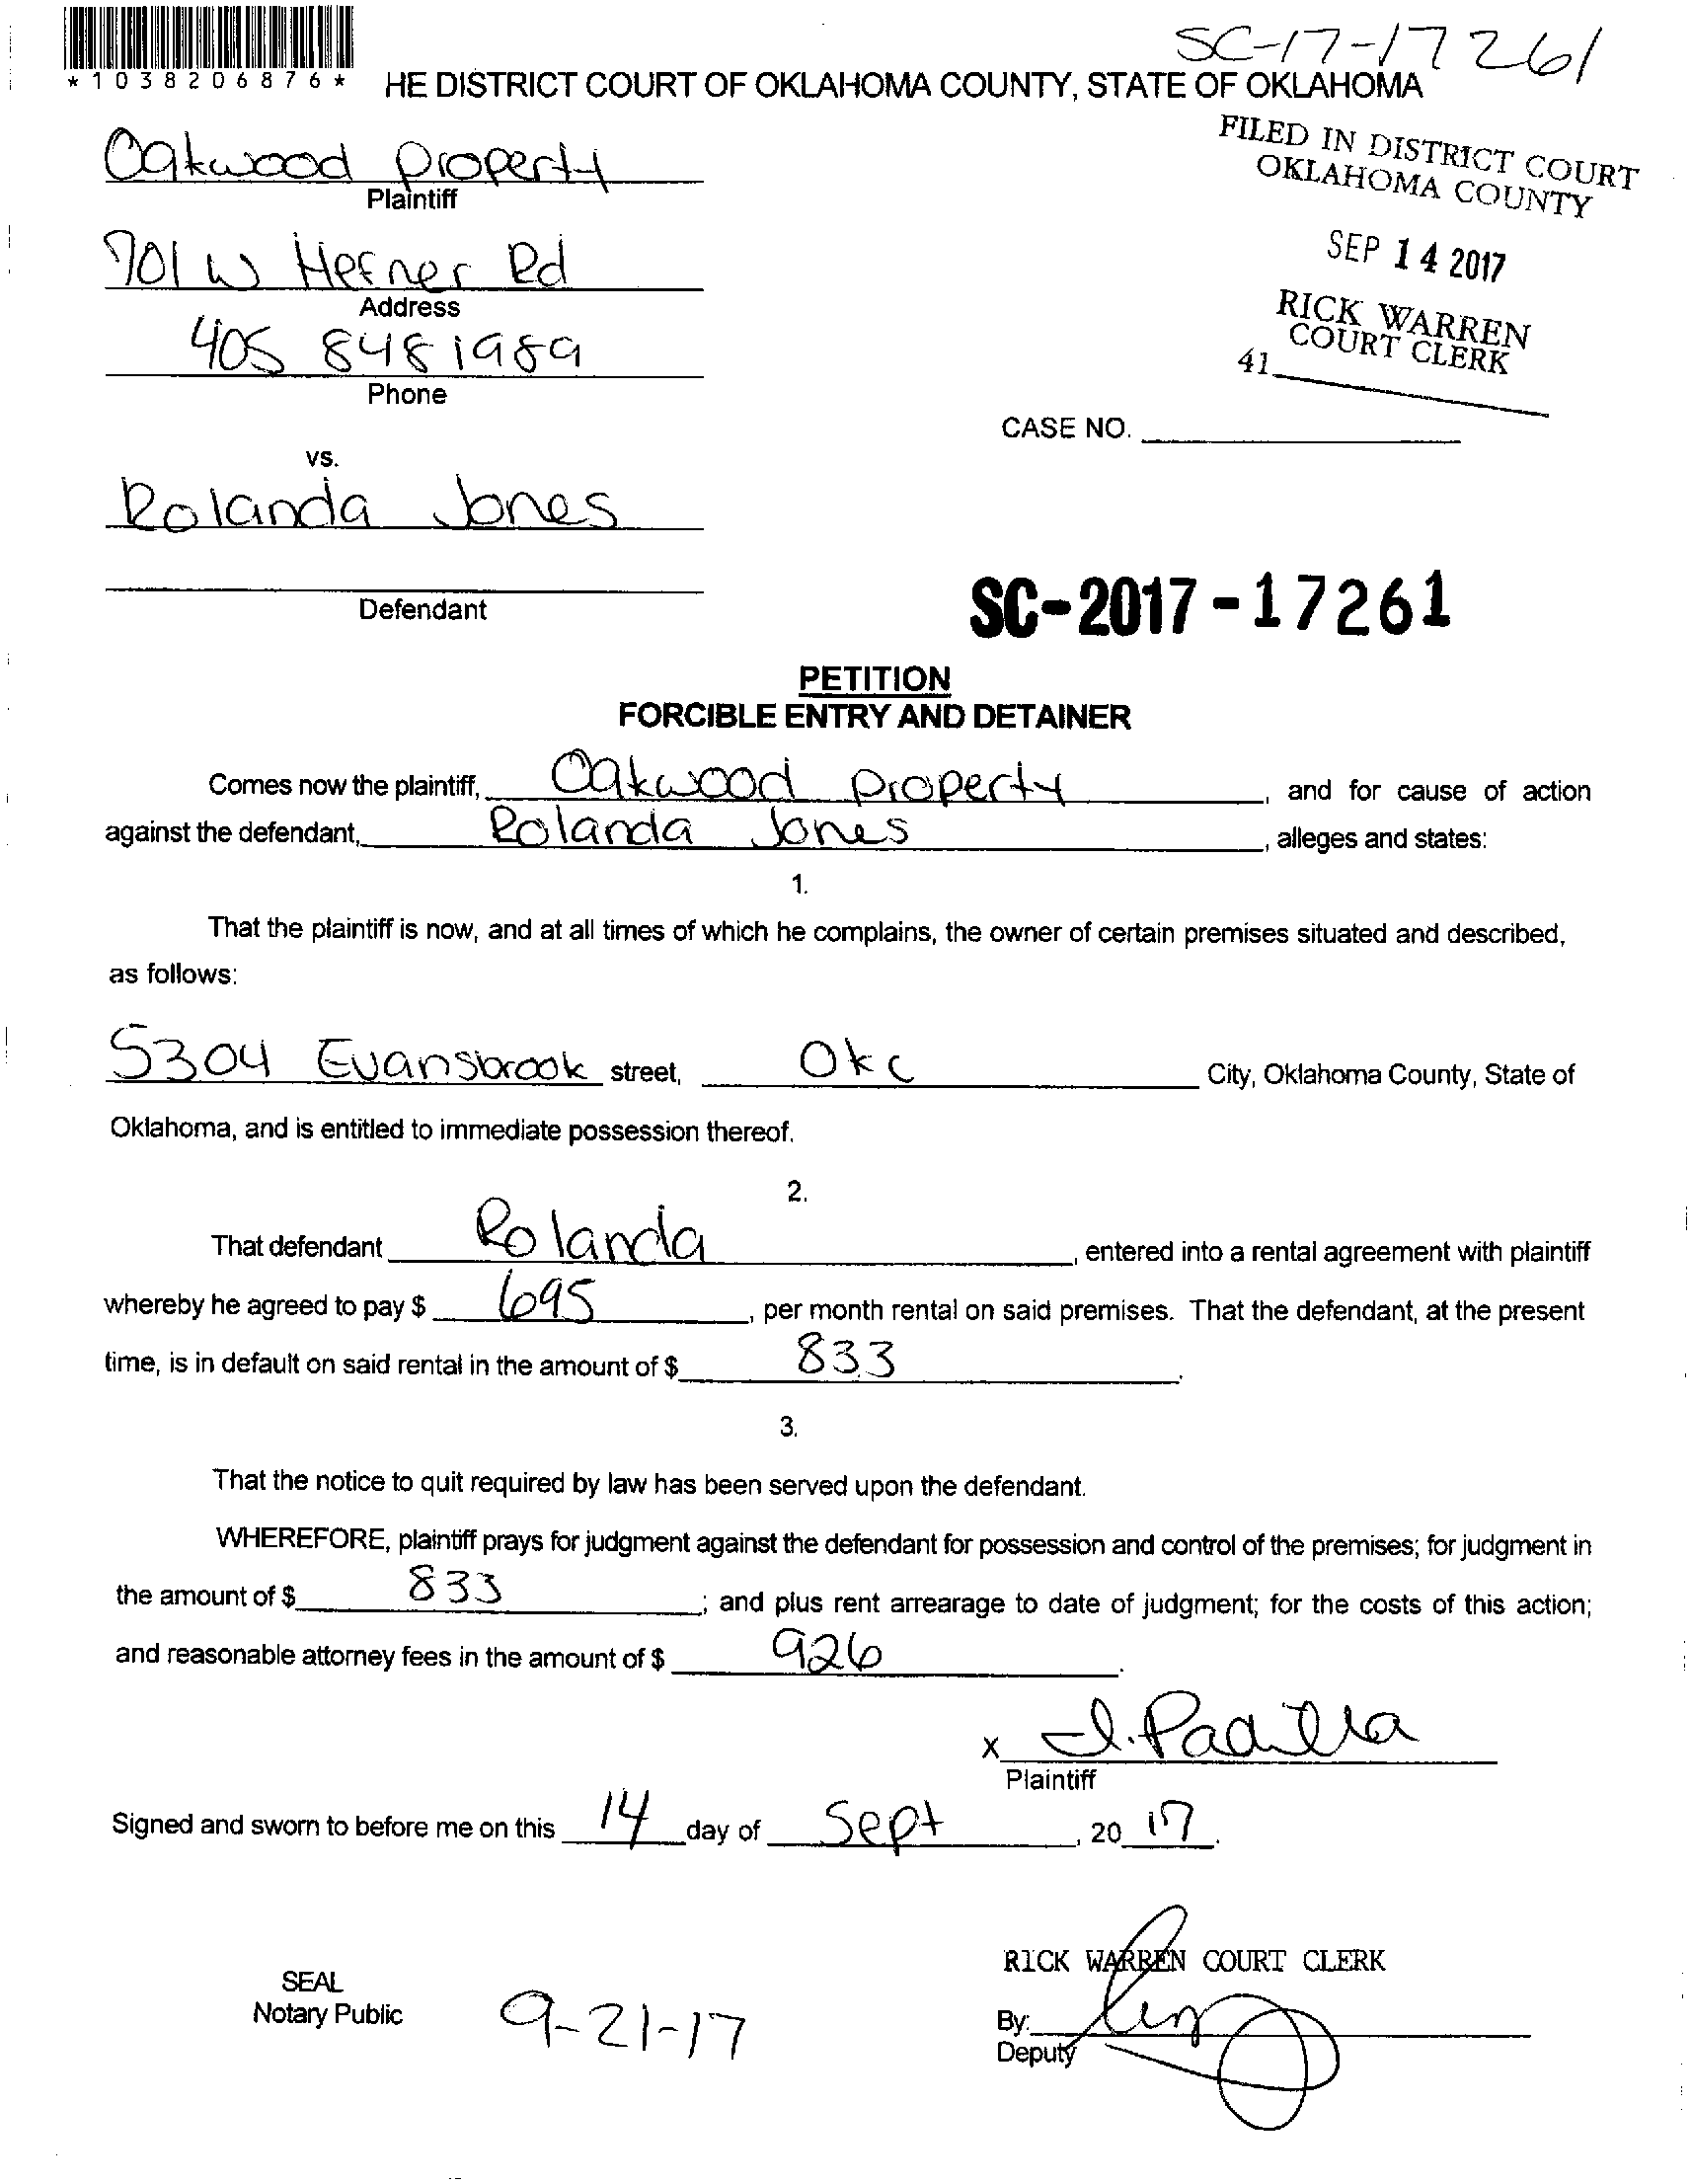 SC-17-17261
*1038206876*
HE DISTRICT COURT OF OKLAHOMA COUNTY, STATE OF OKLAHOMA
Oakwood Property
Plaintiff
FILED IN DISTRICT COURT
OKLAHOMA COUNTY
SEP 14 2017
RICK WARREN
COURT CLERK
41
701 W Hefner Rd
Address
405 848 1989
Phone
CASE NO.
vs.
Rolanda Jones
Defendant
SC-2017-17261
PETITION
FORCIBLE ENTRY AND DETAINER
Comes now the plaintiff, Oakwood Property, and for cause of action
against the defendant, Rolanda Jones, alleges and states:
1.
That the plaintiff is now, and at all times of which he complains, the owner of certain premises situated and described,
as follows:
5304 Evansbrook street, Okc City, Oklahoma County, State of
Oklahoma, and is entitled to immediate possession thereof.
2.
That defendant Rolanda, entered into a rental agreement with plaintiff
whereby he agreed to pay $ 695, per month rental on said premises. That the defendant, at the present
time, is in default on said rental in the amount of $ 833.
3.
That the notice to quit required by law has been served upon the defendant.
WHEREFORE, plaintiff prays for judgment against the defendant for possession and control of the premises; for judgment in
the amount of $ 833; and plus rent arrearage to date of judgment; for the costs of this action;
and reasonable attorney fees in the amount of $ 926.
x I. Padilla
Plaintiff
Signed and sworn to before me on this 14 day of Sept, 20 17.
RICK WARREN COURT CLERK
SEAL
Notary Public
9-21-17
By:
Deputy